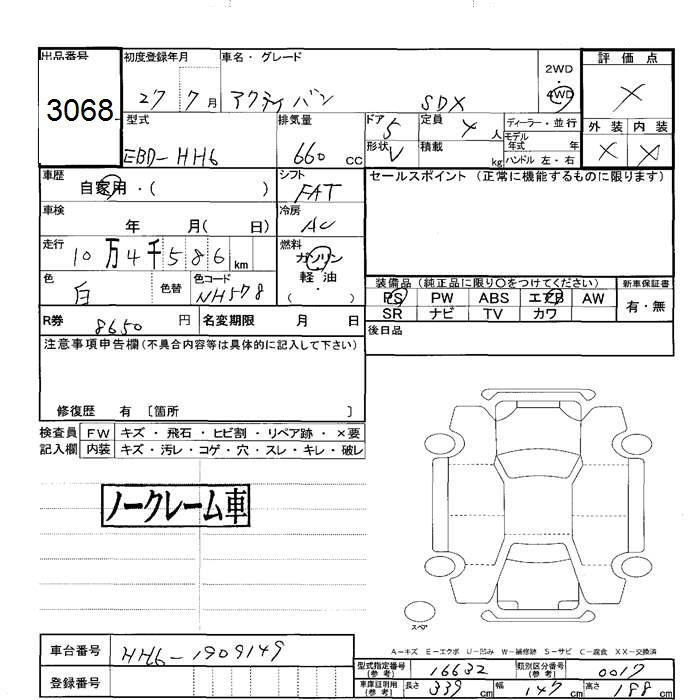 出品番号 初度登録年月 車名・グレード 評価点
3068 27 7月 アクティバン SDX 2WD・4WD ×
型式 排気量 ドア 5 定員 4人 ディーラー・並行 外装 内装
EBD-HH6 660 cc 形状 V 積載 kg モデル年式 年 ハンドル 左・右 × ×
車歴 自家用・( ) シフト FAT セールスポイント (正常に機能するものに限ります)
車検 年 月( 日) 冷房 AC
走行 10万4千586km 燃料 ガソリン・軽油
( )
色 白 色替 色コード NH578
装備品 (純正品に限り○をつけてください) 新車保証書
PS PW ABS エアB AW 有・無
SR ナビ TV カワ
R券 8650円 名変期限 月 日 後日品
注意事項申告欄(不具合内容等は具体的に記入して下さい)
修復歴 有 [箇所 ]
検査員記入欄 FW キズ・飛石・ヒビ割・リペア跡・×要
内装 キズ・汚レ・コゲ・穴・スレ・キレ・破レ
ノークレーム車
スペア
A-キズ E-エクボ U-凹み W-補修跡 S-サビ C-腐食 XX-交換済
車台番号 HH6-1909149
登録番号
型式指定番号(参考) 16632 類別区分番号(参考) 0017
車庫証明用(参考) 長さ 339cm 幅 147cm 高さ cm